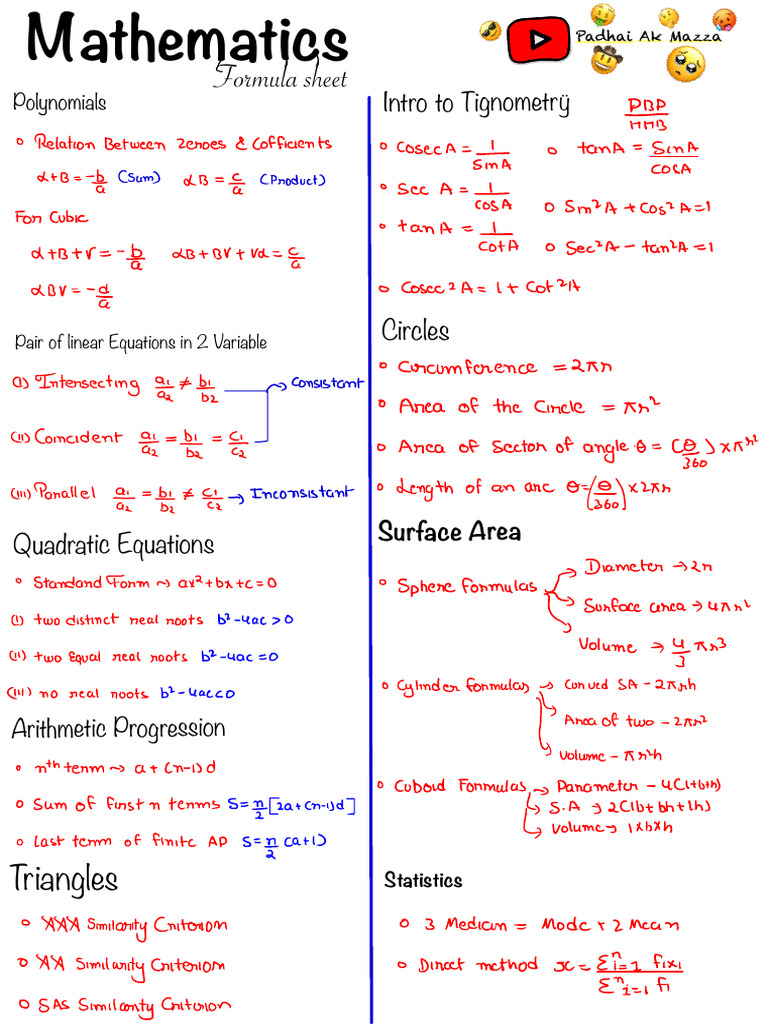 Mathematics
Formula sheet
Padhai Ak Mazza
Polynomials
○ Relation Between Zeroes & Cofficients
α+B = -b/a (Sum) αB = c/a (Product)
For Cubic
α+B+γ = -b/a αB+Bγ+γα = c/a
αBγ = -d/a
Pair of linear Equations in 2 Variable
(i) Intersecting a1/a2 ≠ b1/b2 → Consistant
(ii) Coincident a1/a2 = b1/b2 = c1/c2
(iii) Parallel a1/a2 = b1/b2 ≠ c1/c2 → Inconsistant
Quadratic Equations
○ Standard Form → ax²+bx+c=0
(i) two distinct real roots b²-4ac>0
(ii) two Equal real roots b²-4ac=0
(iii) no real roots b²-4ac<0
Arithmetic Progression
○ nth term → a+(n-1)d
○ Sum of first n terms S=n/2[2a+(n-1)d]
○ Last term of finite AP S=n/2(a+l)
Triangles
○ AAA Similarity Criterion
○ AA Similarity Criterion
○ SAS Similarity Criterion
Intro to Tignometrÿ PBP/HHB
○ CosecA = 1/SinA ○ tanA = SinA/COSA
○ Sec A = 1/COSA ○ Sin²A+Cos²A=1
○ tanA = 1/CotA ○ Sec²A-tan²A=1
○ Cosec²A = 1+Cot²A
Circles
○ Circumference = 2πr
○ Area of the Circle = πr²
○ Area of Sector of angle θ = (θ/360)×πr²
○ Length of an arc θ=(θ/360)×2πr
Surface Area
○ Sphere formulas → Diameter → 2r
→ Surface area → 4πr²
→ Volume → 4/3πr³
○ Cylinder formulas → Curved SA - 2πrh
→ Area of two - 2πr²
→ Volume - πr²h
○ Cuboid Formulas → Parameter - 4(l+b+h)
→ S.A → 2(lb+bh+lh)
→ Volume → l×b×h
Statistics
○ 3 Median = Mode + 2 Mean
○ Direct method x = Σⁿi=1 fixi/Σⁿi=1 fi